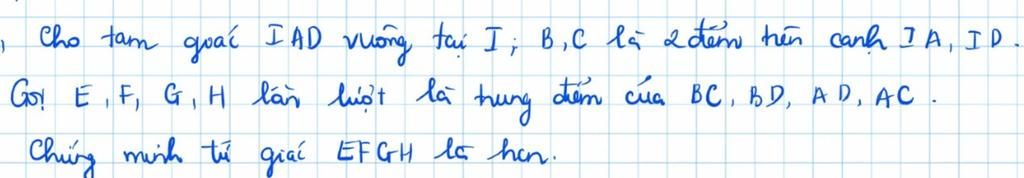 , Cho tam goác IAD vuông tại I; B, C là 2 điểm trên canh IA, ID.
Gọi E, F, G, H lần lượt là trung điểm của BC, BD, AD, AC.
Chứng minh tứ giác EFGH là hcn.